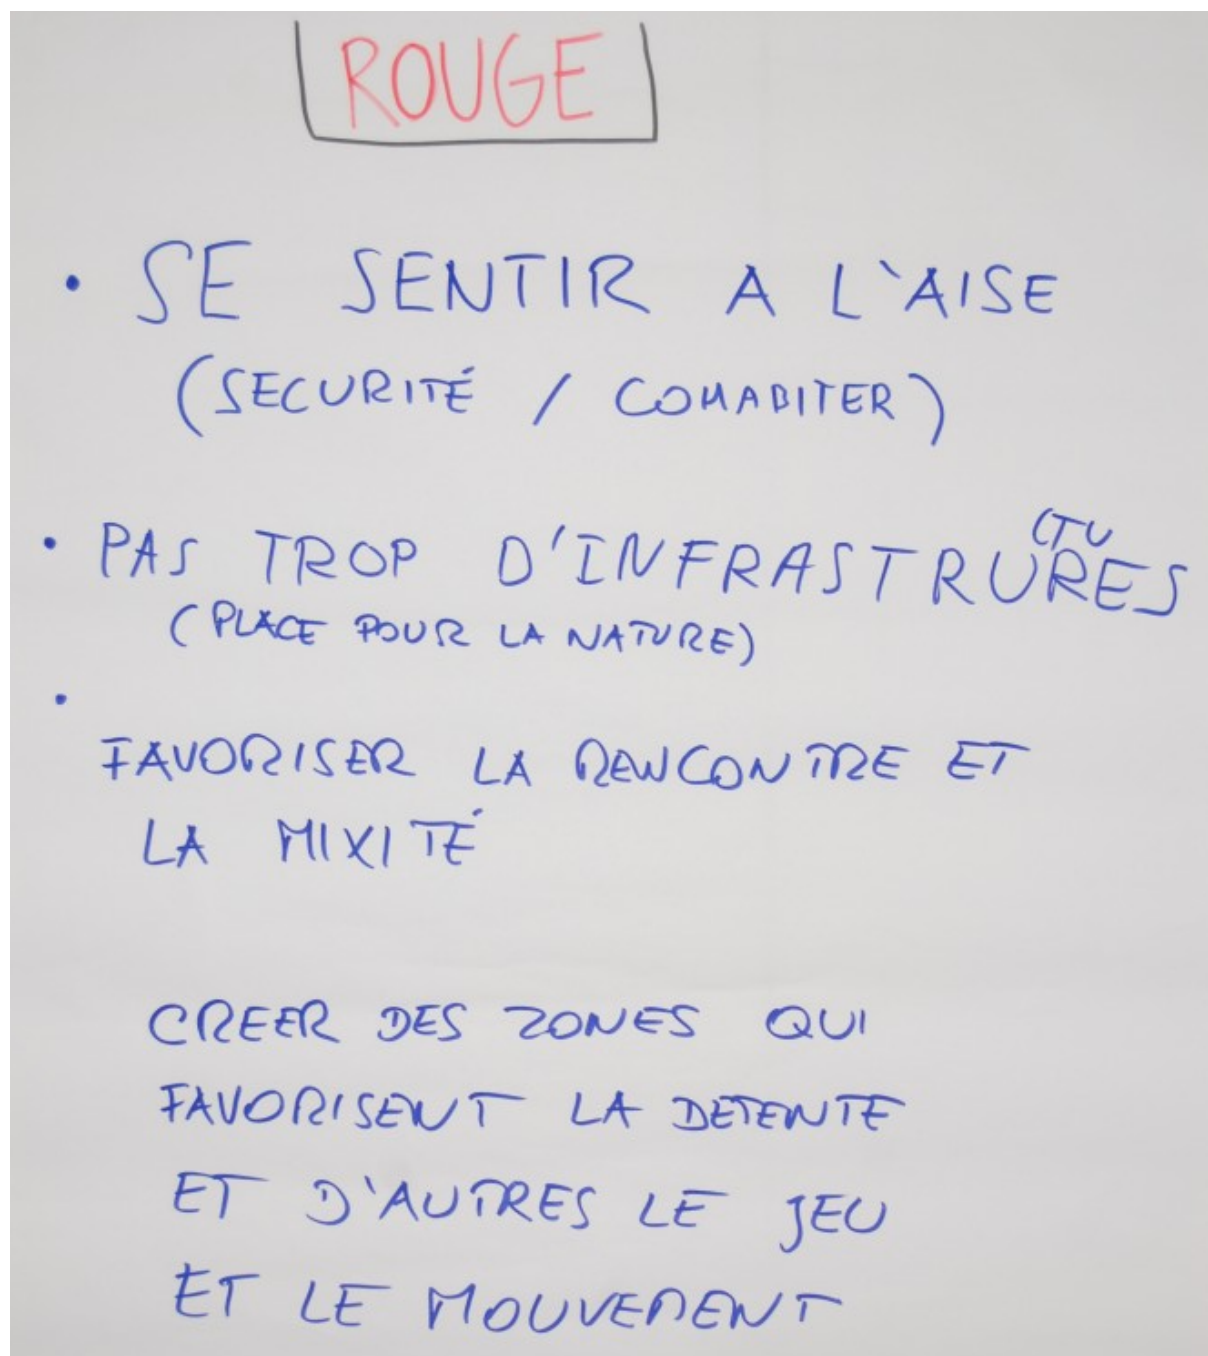 ROUGE
• SE SENTIR A L'AISE
(SECURITÉ / COHABITER)
• PAS TROP D'INFRASTRUCTURES
(PLACE POUR LA NATURE)
•
FAVORISER LA RENCONTRE ET
LA MIXITÉ
CREER DES ZONES QUI
FAVORISENT LA DETENTE
ET D'AUTRES LE JEU
ET LE MOUVEMENT